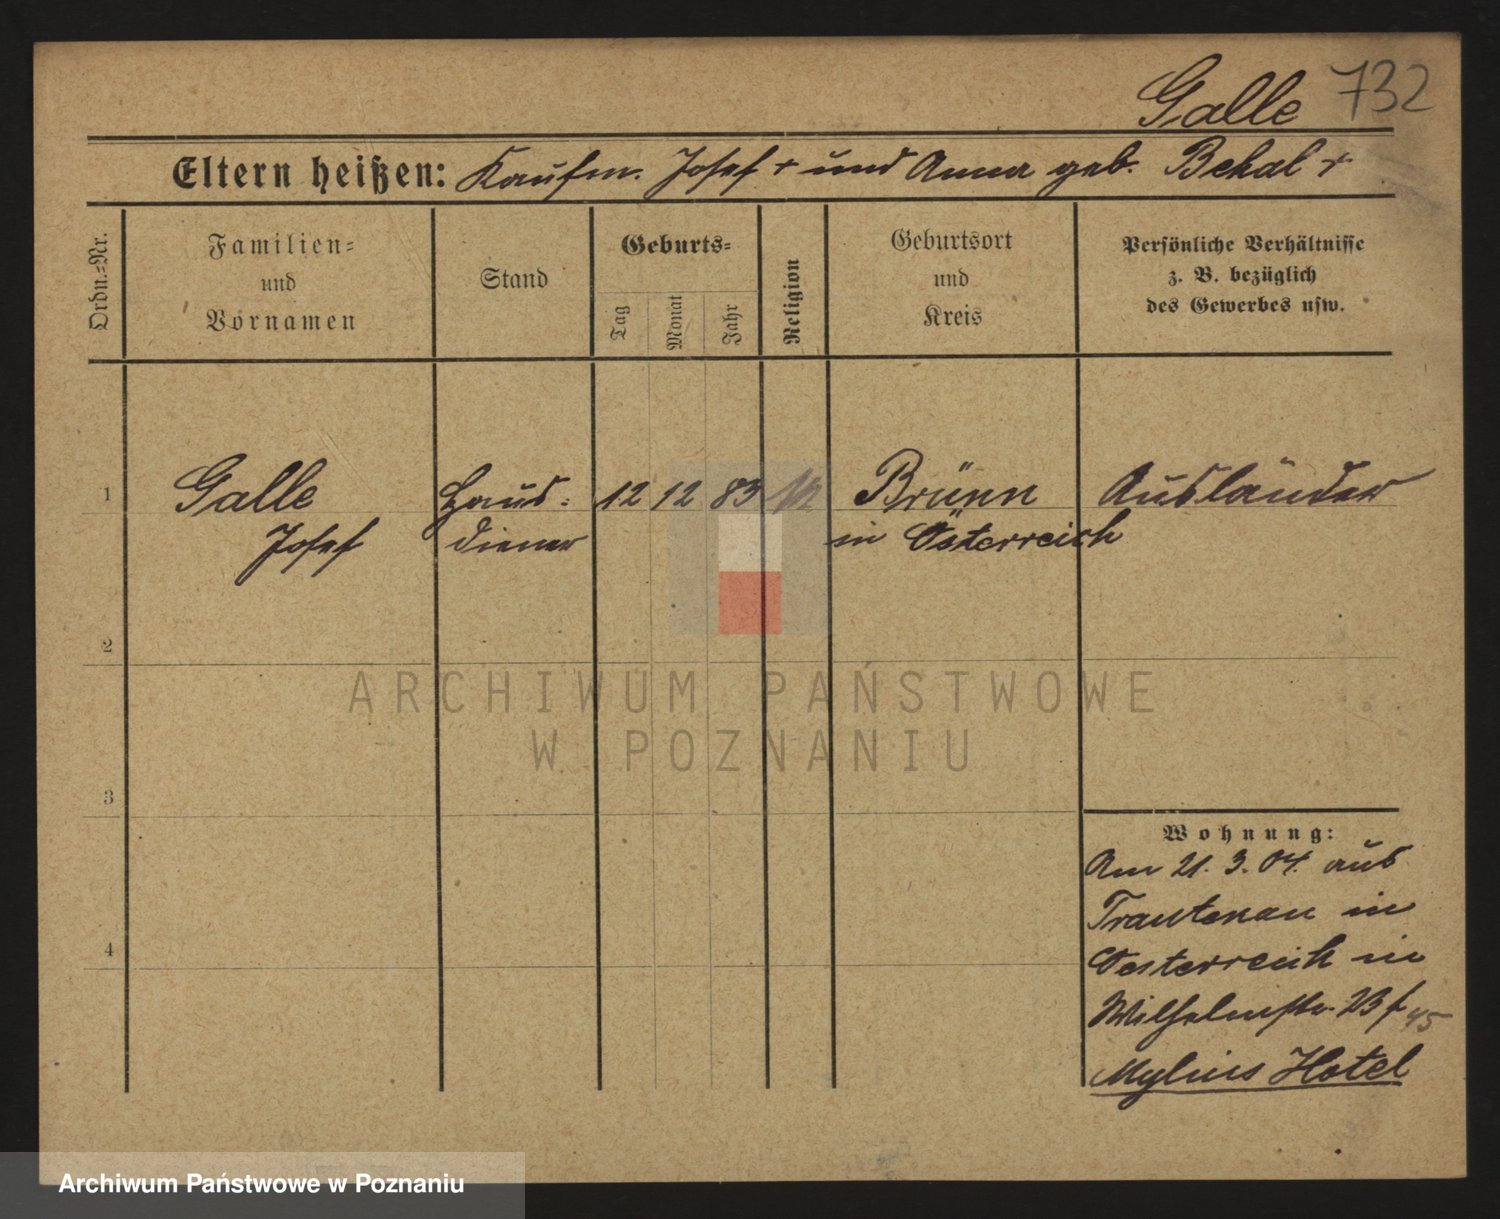 Galle 732
Eltern heißen: Kaufm. Josef + und Anna geb. Bekal +
Ordn.-Nr.
Familien-
und
Vornamen
Stand
Geburts-
Tag
Monat
Jahr
Religion
Geburtsort
und
Kreis
Persönliche Verhältnisse
z. B. bezüglich
des Gewerbes usw.
1 Galle Haus- 12 12 83 Brünn Ausländer
Josef diener in Österreich
2
ARCHIWUM PAŃSTWOWE
W POZNANIU
3
Wohnung:
Am 21. 3. 04. aus
Trautenau in
4
Oesterreich in
Wilhelmstr. 23
Mylius Hotel
Archiwum Państwowe w Poznaniu